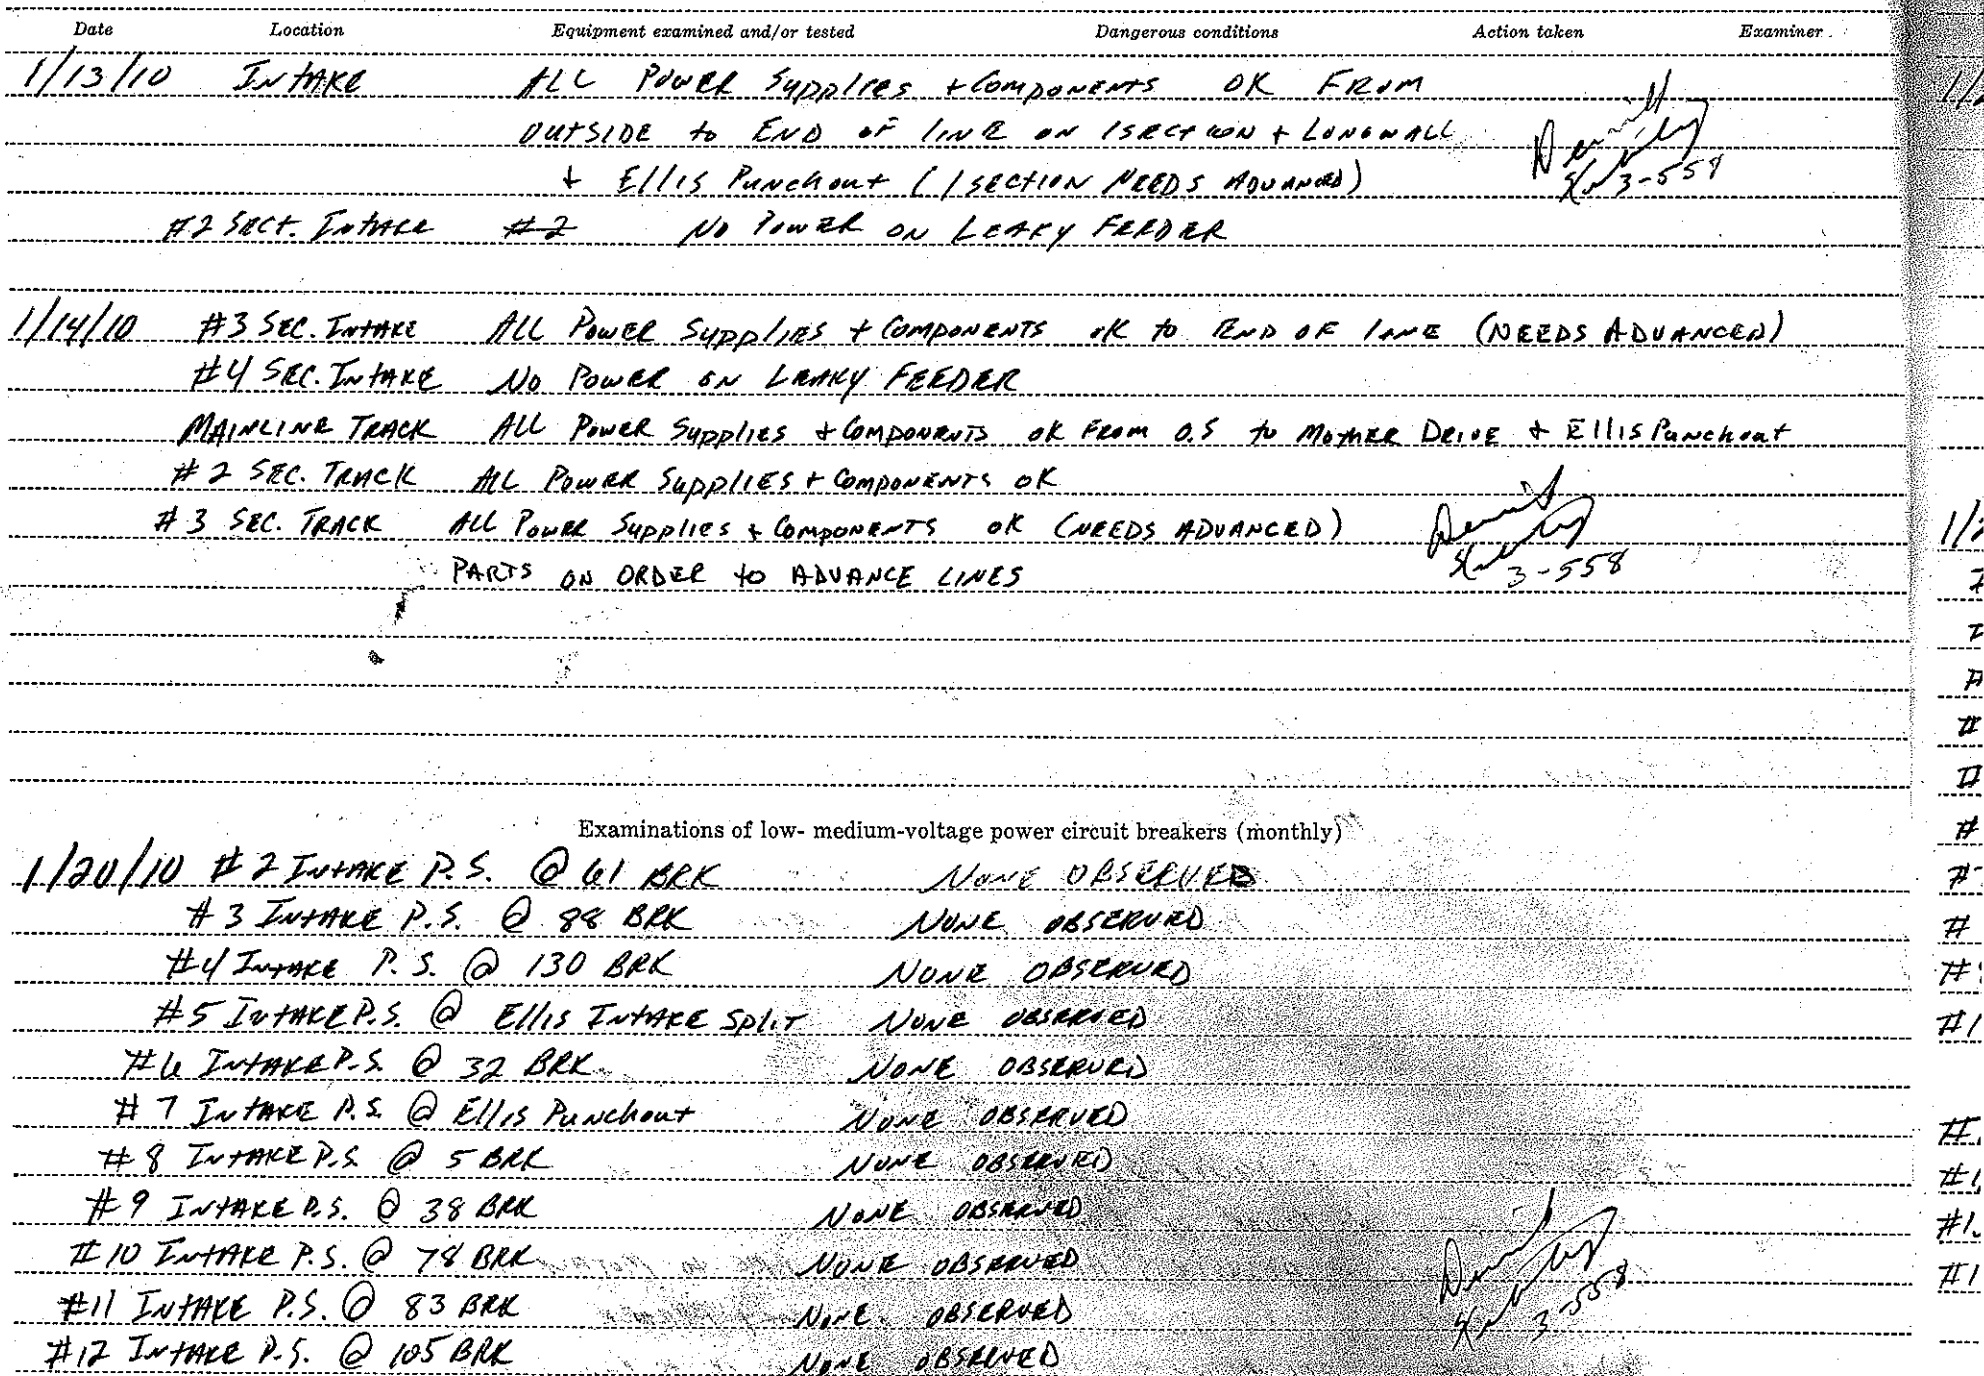 Date Location Equipment examined and/or tested Dangerous conditions Action taken Examiner
1/13/10 INTAKE ALL POWER SUPPLIES + COMPONENTS OK FROM
OUTSIDE to END OF LINE ON 1 SECTION + LONGWALL
+ Ellis Punchout (1 SECTION NEEDS ADVANCED)
3-558
#2 SECT. INTAKE #2 NO POWER ON LEAKY FEEDER
1/14/10 #3 SEC. INTAKE ALL POWER SUPPLIES + COMPONENTS OK to END OF LINE (NEEDS ADVANCED)
#4 SEC. INTAKE NO POWER ON LEAKY FEEDER
MAINLINE TRACK ALL POWER SUPPLIES + COMPONENTS OK FROM O.S to MOTHER DRIVE + Ellis Punchout
#2 SEC. TRACK ALL POWER SUPPLIES + COMPONENTS OK
#3 SEC. TRACK ALL POWER SUPPLIES + COMPONENTS OK (NEEDS ADVANCED)
PARTS ON ORDER to ADVANCE LINES
3-558
Examinations of low- medium-voltage power circuit breakers (monthly)
1/20/10 #2 INTAKE P.S. @ 61 BRK NONE OBSERVED
#3 INTAKE P.S. @ 88 BRK NONE OBSERVED
#4 INTAKE P.S. @ 130 BRK NONE OBSERVED
#5 INTAKE P.S. @ Ellis INTAKE Split NONE OBSERVED
#6 INTAKE P.S. @ 32 BRK NONE OBSERVED
#7 INTAKE P.S. @ Ellis Punchout NONE OBSERVED
#8 INTAKE P.S. @ 5 BRK NONE OBSERVED
#9 INTAKE P.S. @ 38 BRK NONE OBSERVED
#10 INTAKE P.S. @ 78 BRK NONE OBSERVED
#11 INTAKE P.S. @ 83 BRK NONE OBSERVED
3-558
#12 INTAKE P.S. @ 105 BRK NONE OBSERVED